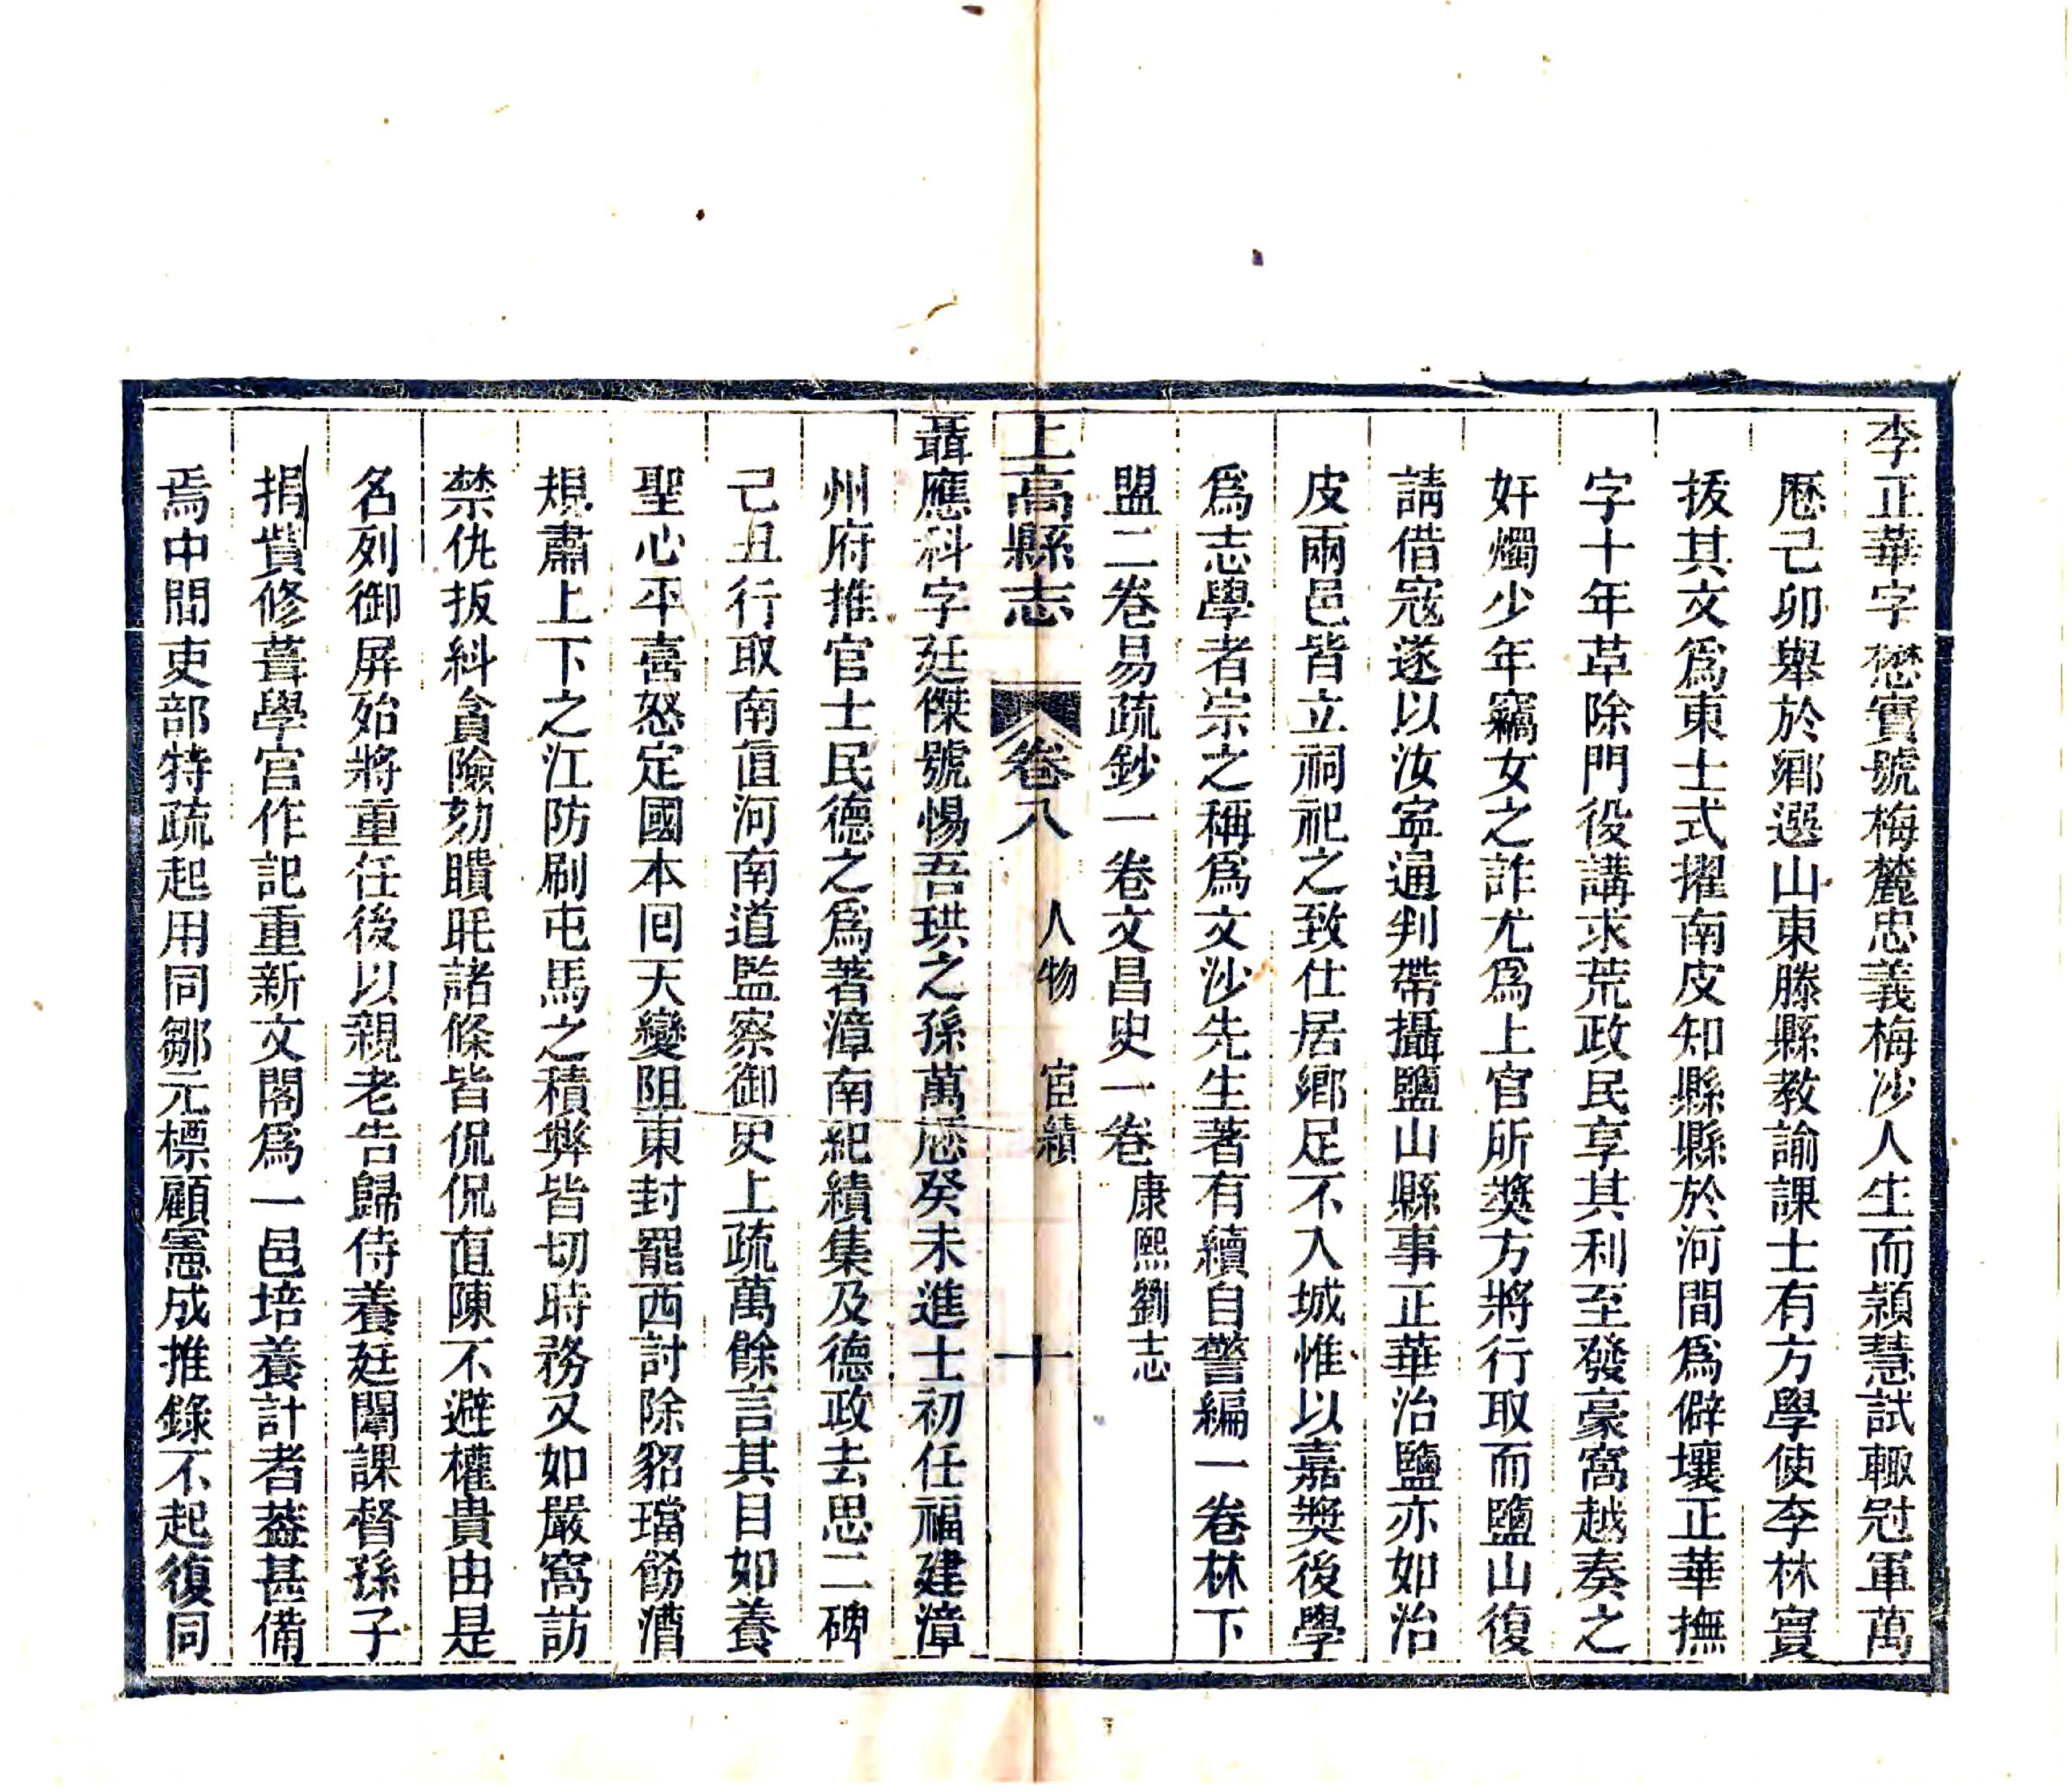 李正華字懋實號梅麓忠義梅沙人生而穎慧試輙冠軍萬
厯己卯舉於鄉選山東滕縣教諭課士有方學使李林實
拔其文爲東士式擢南皮知縣縣於河間爲僻壤正華撫
字十年革除門役講求荒政民享其利至發豪窩越奏之
奸燭少年竊女之詐尤爲上官所奬方將行取而鹽山復
請借寇遂以汝寕通判帶攝鹽山縣事正華治鹽亦如治
皮兩邑皆立祠祀之致仕居鄉足不入城惟以嘉奬後學
爲志學者宗之稱爲文沙先生著有續自警編一卷林下
盟二卷易疏鈔一卷文昌史一卷康熙劉志
上高縣志 卷八 人物 宦績 十
聶應科字廷傑號惕吾珙之孫萬厯癸未進士初任福建漳
州府推官士民德之爲著漳南紀績集及德政去思二碑
己丑行取南直河南道監察御史上疏萬餘言其目如養
聖心平喜怒定國本回天變阻東封罷西討除貂璫飭漕
規肅上下之江防刷屯馬之積弊皆切時務又如嚴窩訪
禁仇扳糾貪險劾瞶眊諸條皆侃侃直陳不避權貴由是
名列御屏始將重任後以親老告歸侍養廷闈課督孫子
捐貲修葺學宮作記重新文閣爲一邑培養計者葢甚備
焉中間吏部特疏起用同鄒元標顧憲成推錄不起復同